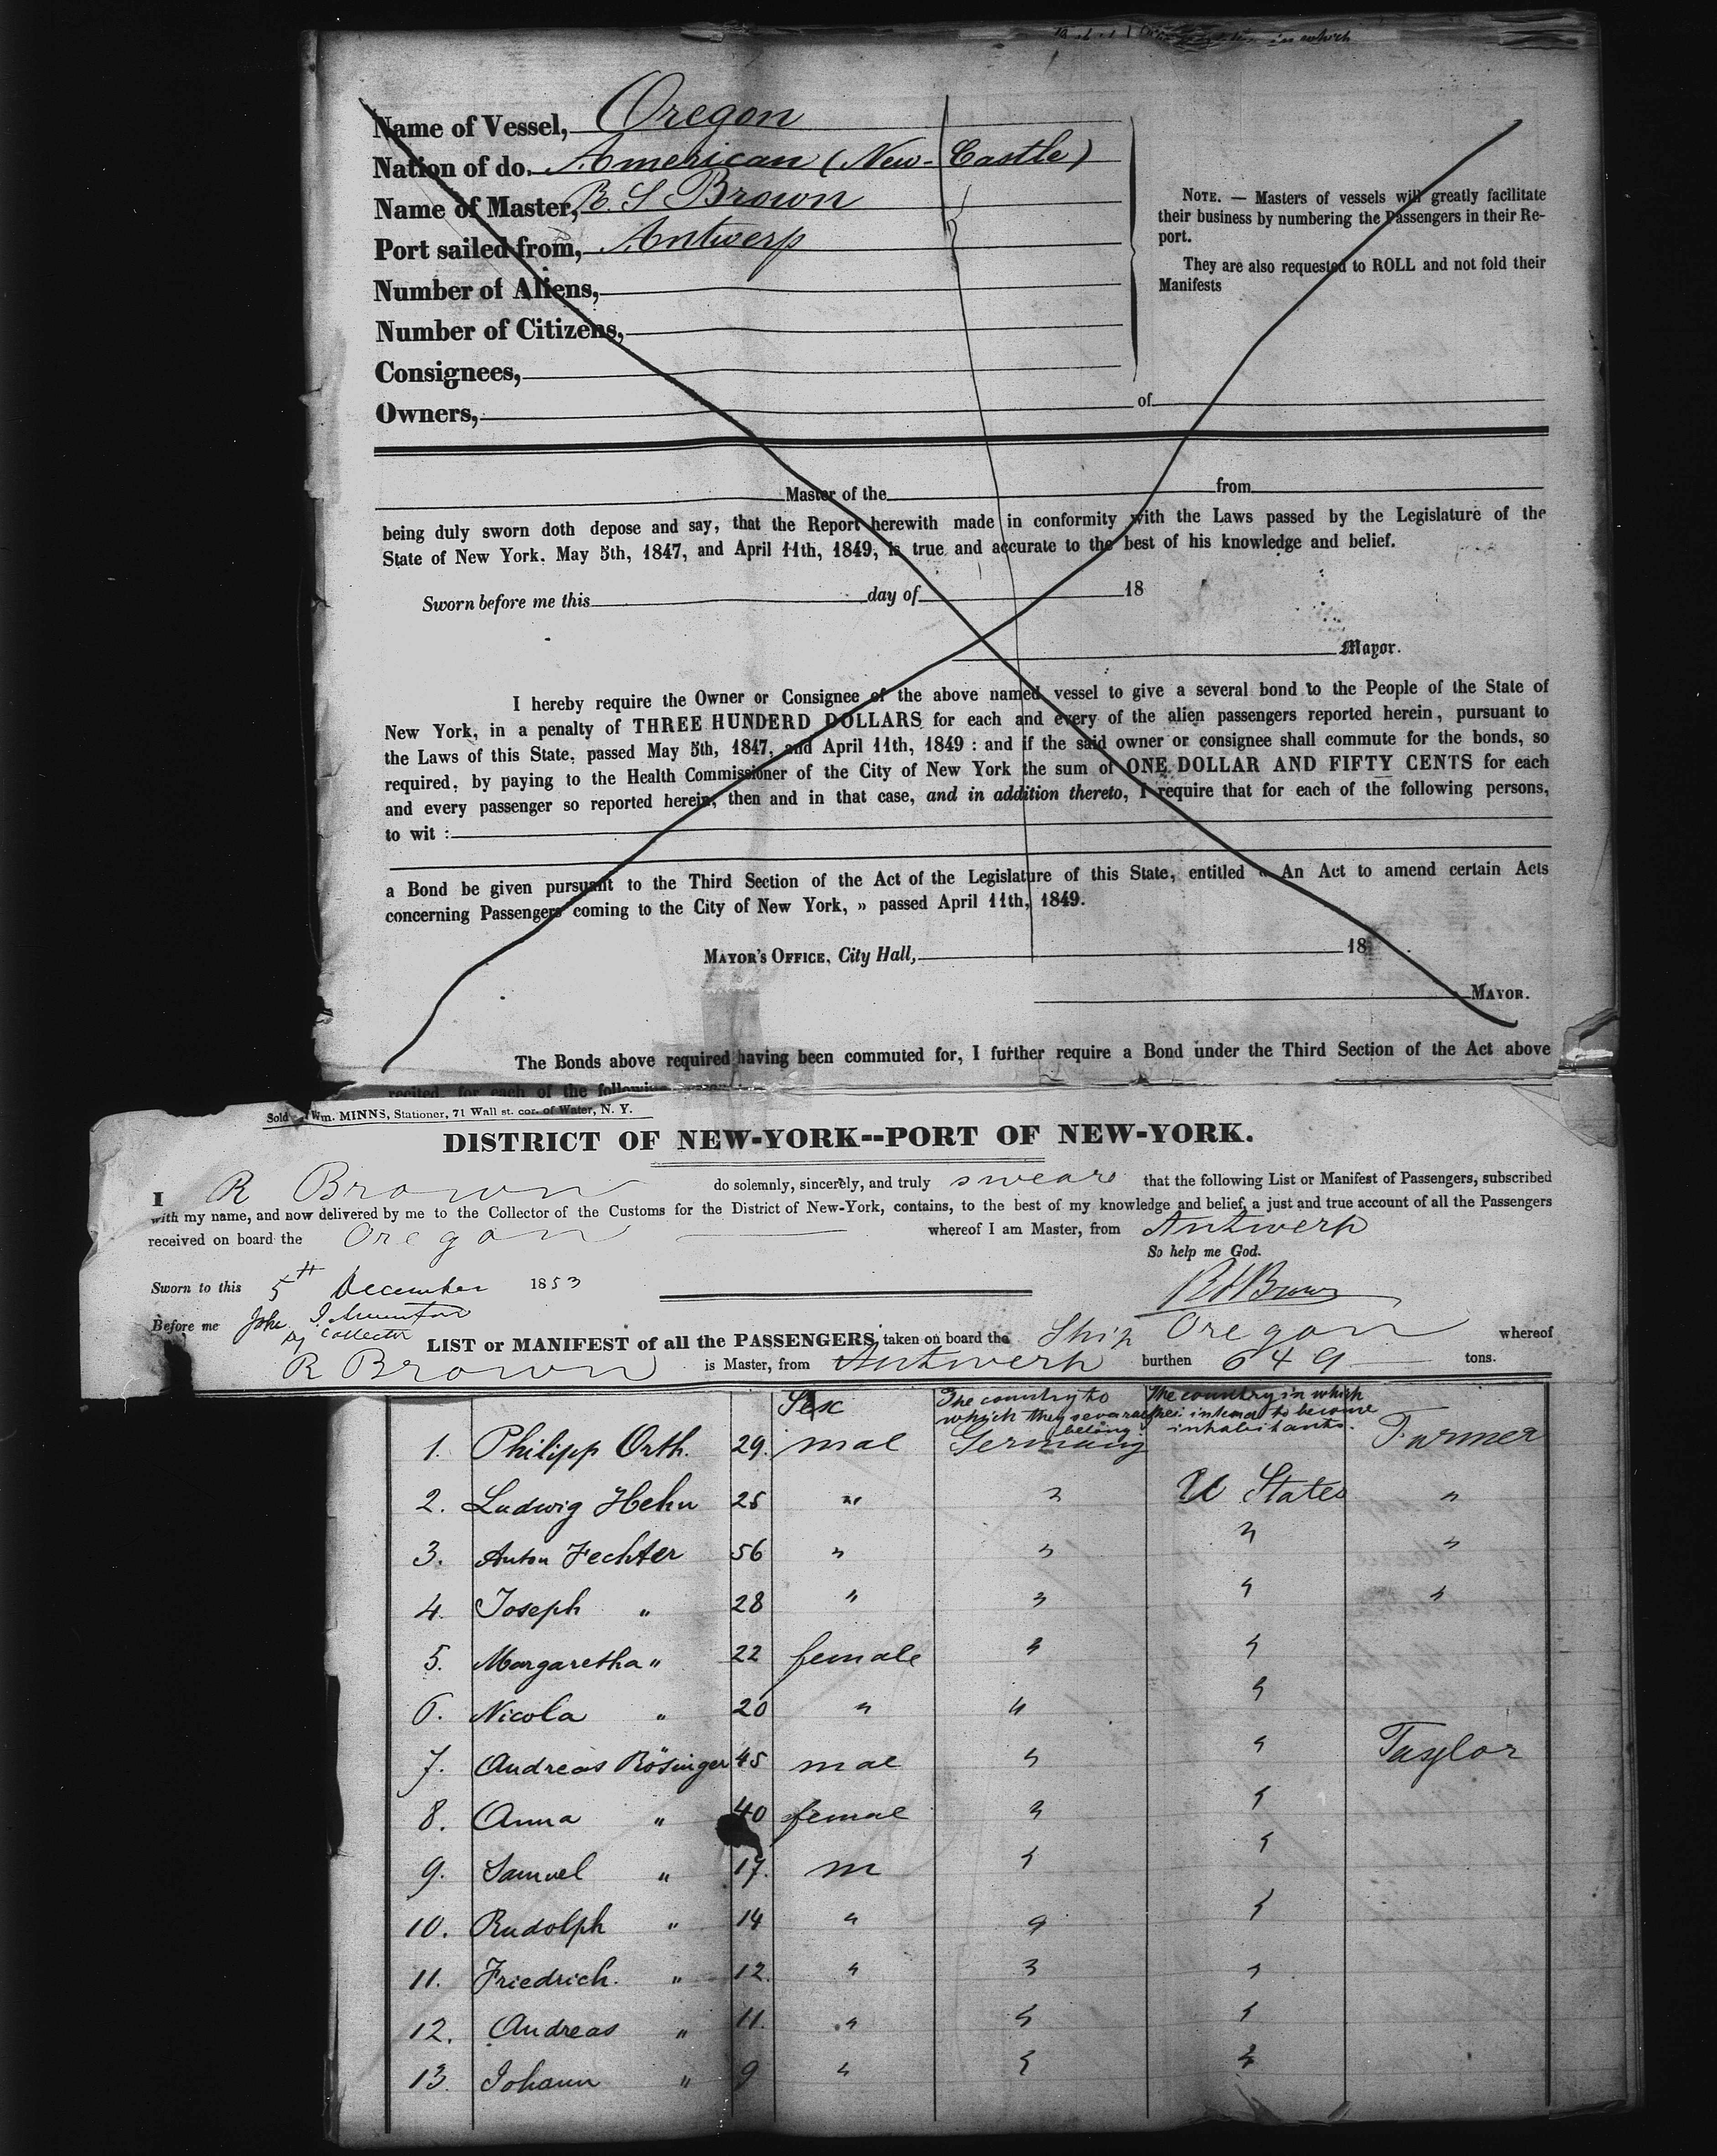 in which
Name of Vessel, Oregon
Nation of do. American (New-Castle)
Name of Master, R. S Brown
Port sailed from, Antwerp
Number of Aliens,
Number of Citizens,
Consignees,
Owners, of
NOTE. — Masters of vessels will greatly facilitate
their business by numbering the Passengers in their Re-
port.
They are also requested to ROLL and not fold their
Manifests
Master of the from
being duly sworn doth depose and say, that the Report herewith made in conformity with the Laws passed by the Legislature of the
State of New York, May 5th, 1847, and April 11th, 1849, is true and accurate to the best of his knowledge and belief.
Sworn before me this day of 18
Mayor.
I hereby require the Owner or Consignee of the above named vessel to give a several bond to the People of the State of
New York, in a penalty of THREE HUNDERD DOLLARS for each and every of the alien passengers reported herein, pursuant to
the Laws of this State, passed May 5th, 1847, and April 11th, 1849 : and if the said owner or consignee shall commute for the bonds, so
required, by paying to the Health Commissioner of the City of New York the sum of ONE DOLLAR AND FIFTY CENTS for each
and every passenger so reported herein, then and in that case, and in addition thereto, I require that for each of the following persons,
to wit :
a Bond be given pursuant to the Third Section of the Act of the Legislature of this State, entitled « An Act to amend certain Acts
concerning Passengers coming to the City of New York, » passed April 11th, 1849.
MAYOR'S OFFICE, City Hall, 18
MAYOR.
The Bonds above required having been commuted for, I further require a Bond under the Third Section of the Act above
recited, for each of the following
Sold Wm. MINNS, Stationer, 71 Wall st. cor. of Water, N. Y.
DISTRICT OF NEW-YORK--PORT OF NEW-YORK.
I R Brown do solemnly, sincerely, and truly swear that the following List or Manifest of Passengers, subscribed
with my name, and now delivered by me to the Collector of the Customs for the District of New-York, contains, to the best of my knowledge and belief, a just and true account of all the Passengers
received on board the Oregon whereof I am Master, from Antwerp
So help me God.
Sworn to this 5th December 1853
R S Brown
Before me John
Dy Collector
LIST or MANIFEST of all the PASSENGERS taken on board the Ship Oregon whereof
R Brown is Master, from Antwerp burthen 649 tons.
Sex The country to which they severally belong The country in which they intend to become inhabitants.
1. Philipp Orth. 29. mal Germany Farmer
2. Ludwig Hehn 25 " " U States "
3. Anton Fechter 56 " " " "
4. Joseph " 28 " " " "
5. Margaretha " 22 female " "
6. Nicola " 20 " " "
7. Andreas Rösinger 45 mal " " Taylor
8. Anna " 40 femal " "
9. Samuel " 17. m " "
10. Rudolph " 14 " " "
11. Friedrich. " 12. " " "
12. Andreas " 11. " " "
13. Johann " 9 " " "